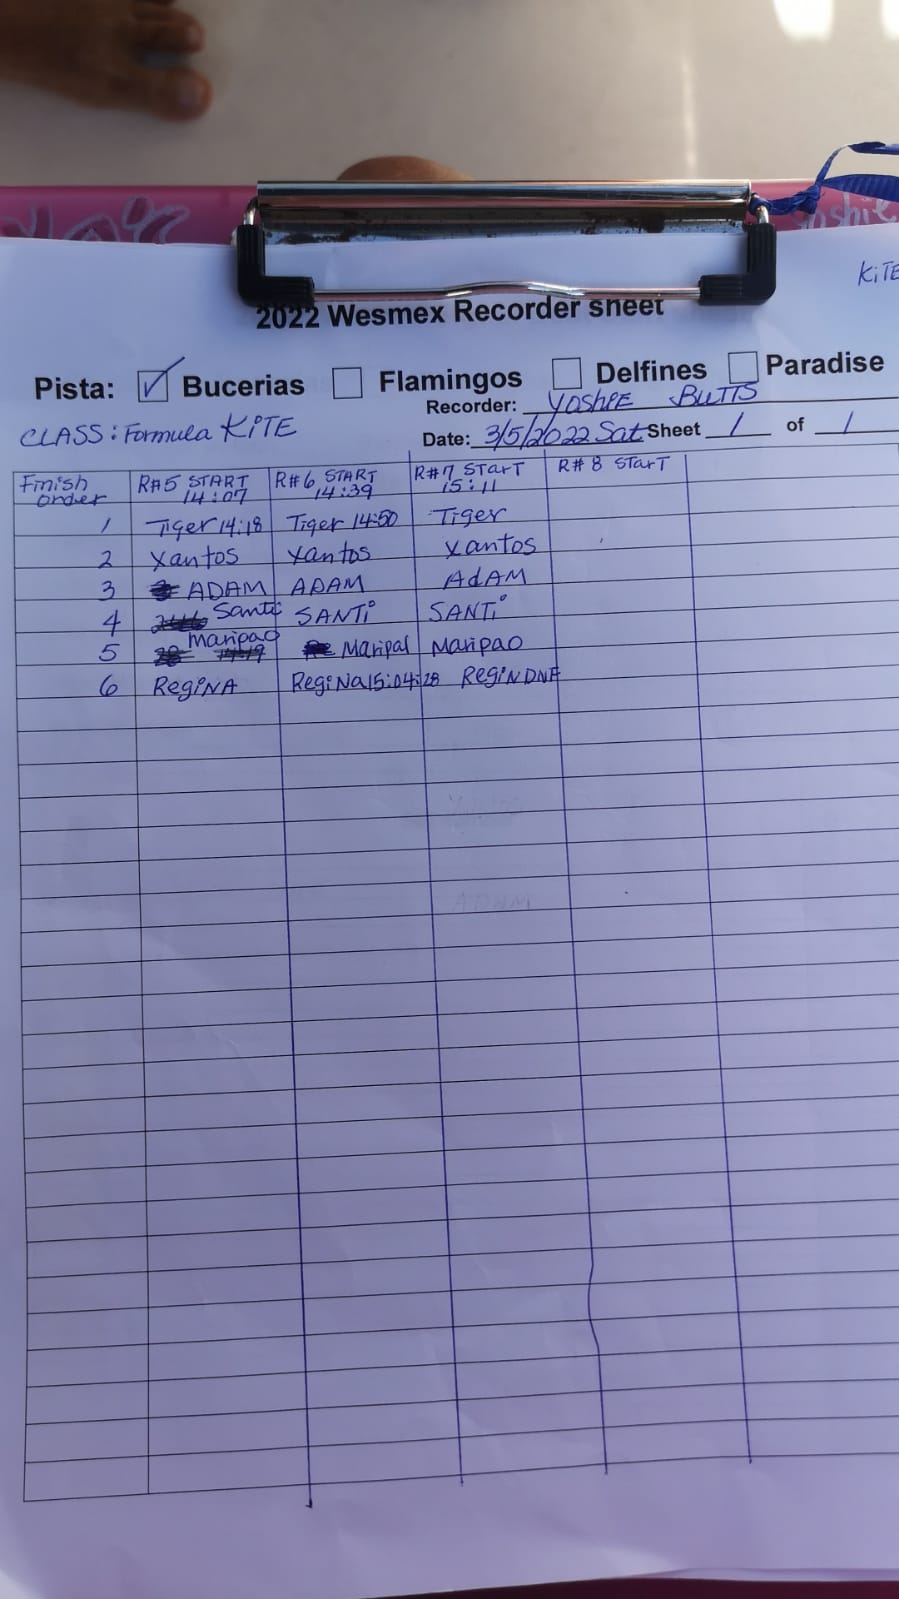 KITE
2022 Wesmex Recorder sheet
Pista: Bucerias Flamingos Delfines Paradise
Recorder: YOSHIE BUTTS
CLASS: Formula KITE Date: 3/5/2022 Sat. Sheet 1 of 1
Finish order R#5 START 14:07 R#6 START 14:39 R#7 START 15:11 R#8 START
1 Tiger 14:18 Tiger 14:50 Tiger
2 Xantos Xantos Xantos
3 ADAM ADAM AdAM
4 Santi SANTi SANTi
5 Maripao 14:19 Maripal Maripao
6 RegiNA RegiNa 15:04:28 RegiN DNF